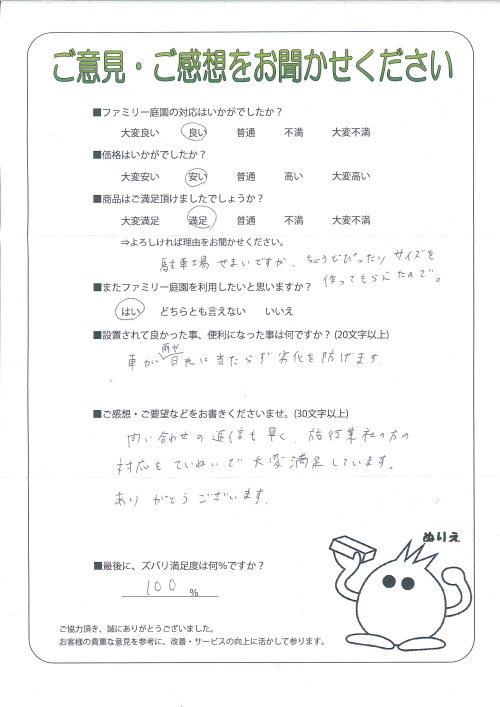 ご意見・ご感想をお聞かせください
■ファミリー庭園の対応はいかがでしたか？
大変良い 良い 普通 不満 大変不満
■価格はいかがでしたか？
大変安い 安い 普通 高い 大変高い
■商品はご満足頂けましたでしょうか？
大変満足 満足 普通 不満 大変不満
⇒よろしければ理由をお聞かせください。
駐車場せまいですが、ちょうどぴったりサイズを
作ってもらえたので。
■またファミリー庭園を利用したいと思いますか？
はい どちらとも言えない いいえ
■設置されて良かった事、便利になった事は何ですか？(20文字以上)
雨や
車が日光に当たらず劣化を防げます.
■ご感想・ご要望などをお書きくださいませ。(30文字以上)
問い合わせの返信も早く、施行業社の方の
対応もていねいで大変満足しています。
ありがとうございます.
ぬりえ
■最後に、ズバリ満足度は何%ですか？
100 %
ご協力頂き、誠にありがとうございました。
お客様の貴重な意見を参考に、改善・サービスの向上に活かして参ります。